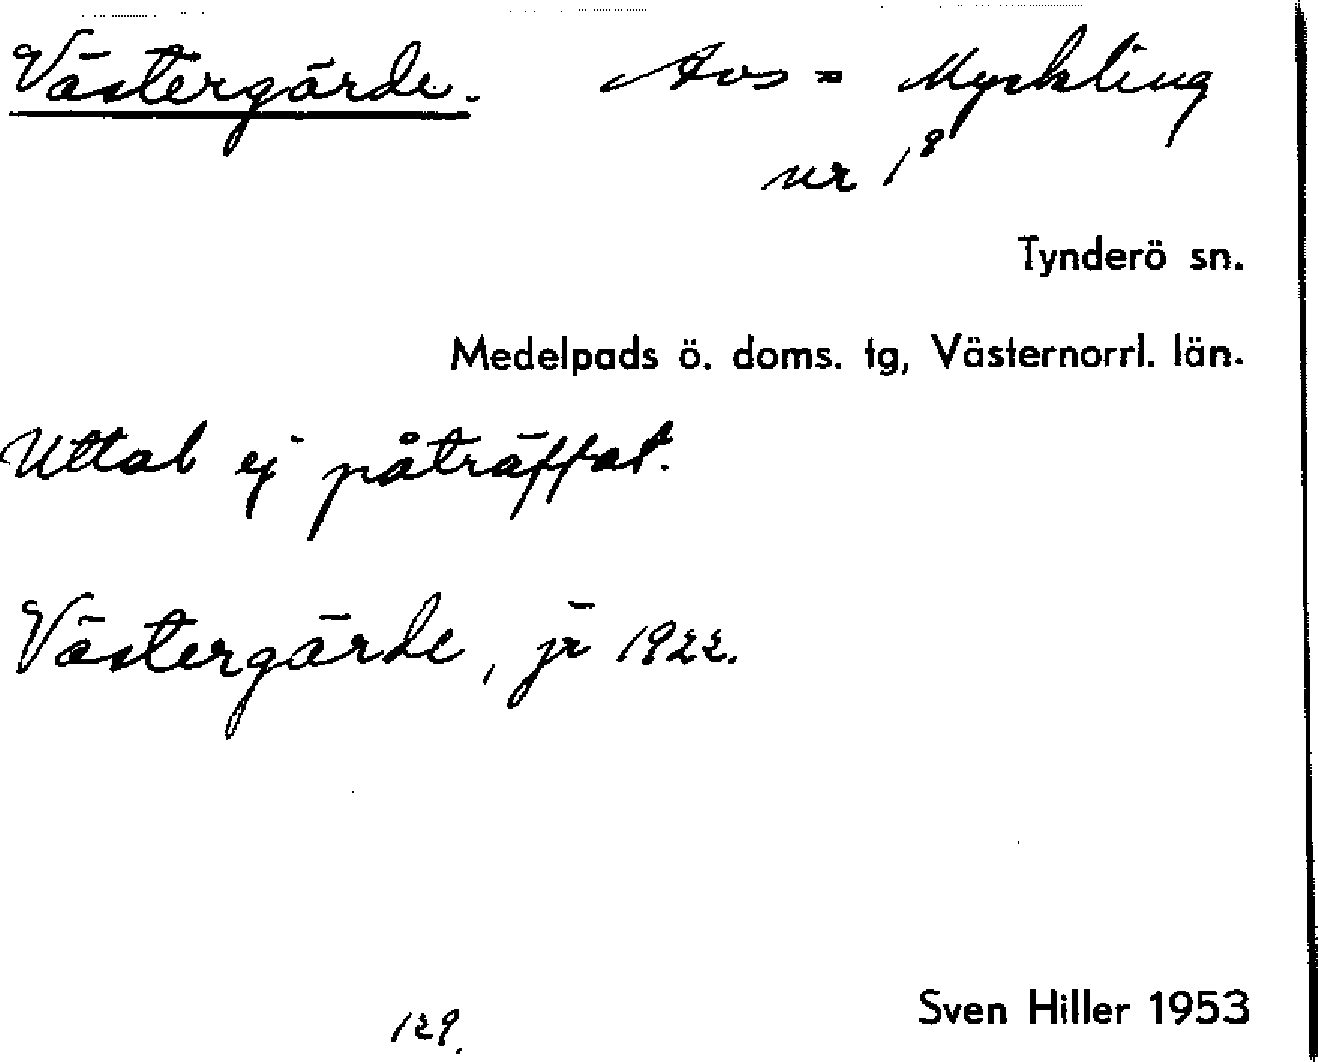 Västergärde. Avs = Myckling
nr 1⁸
Tynderö sn.
Medelpads ö. doms. tg, Västernorrl. län.
Uttal ej påträffat.
Västergärde, jr 1922.
129.
Sven Hiller 1953